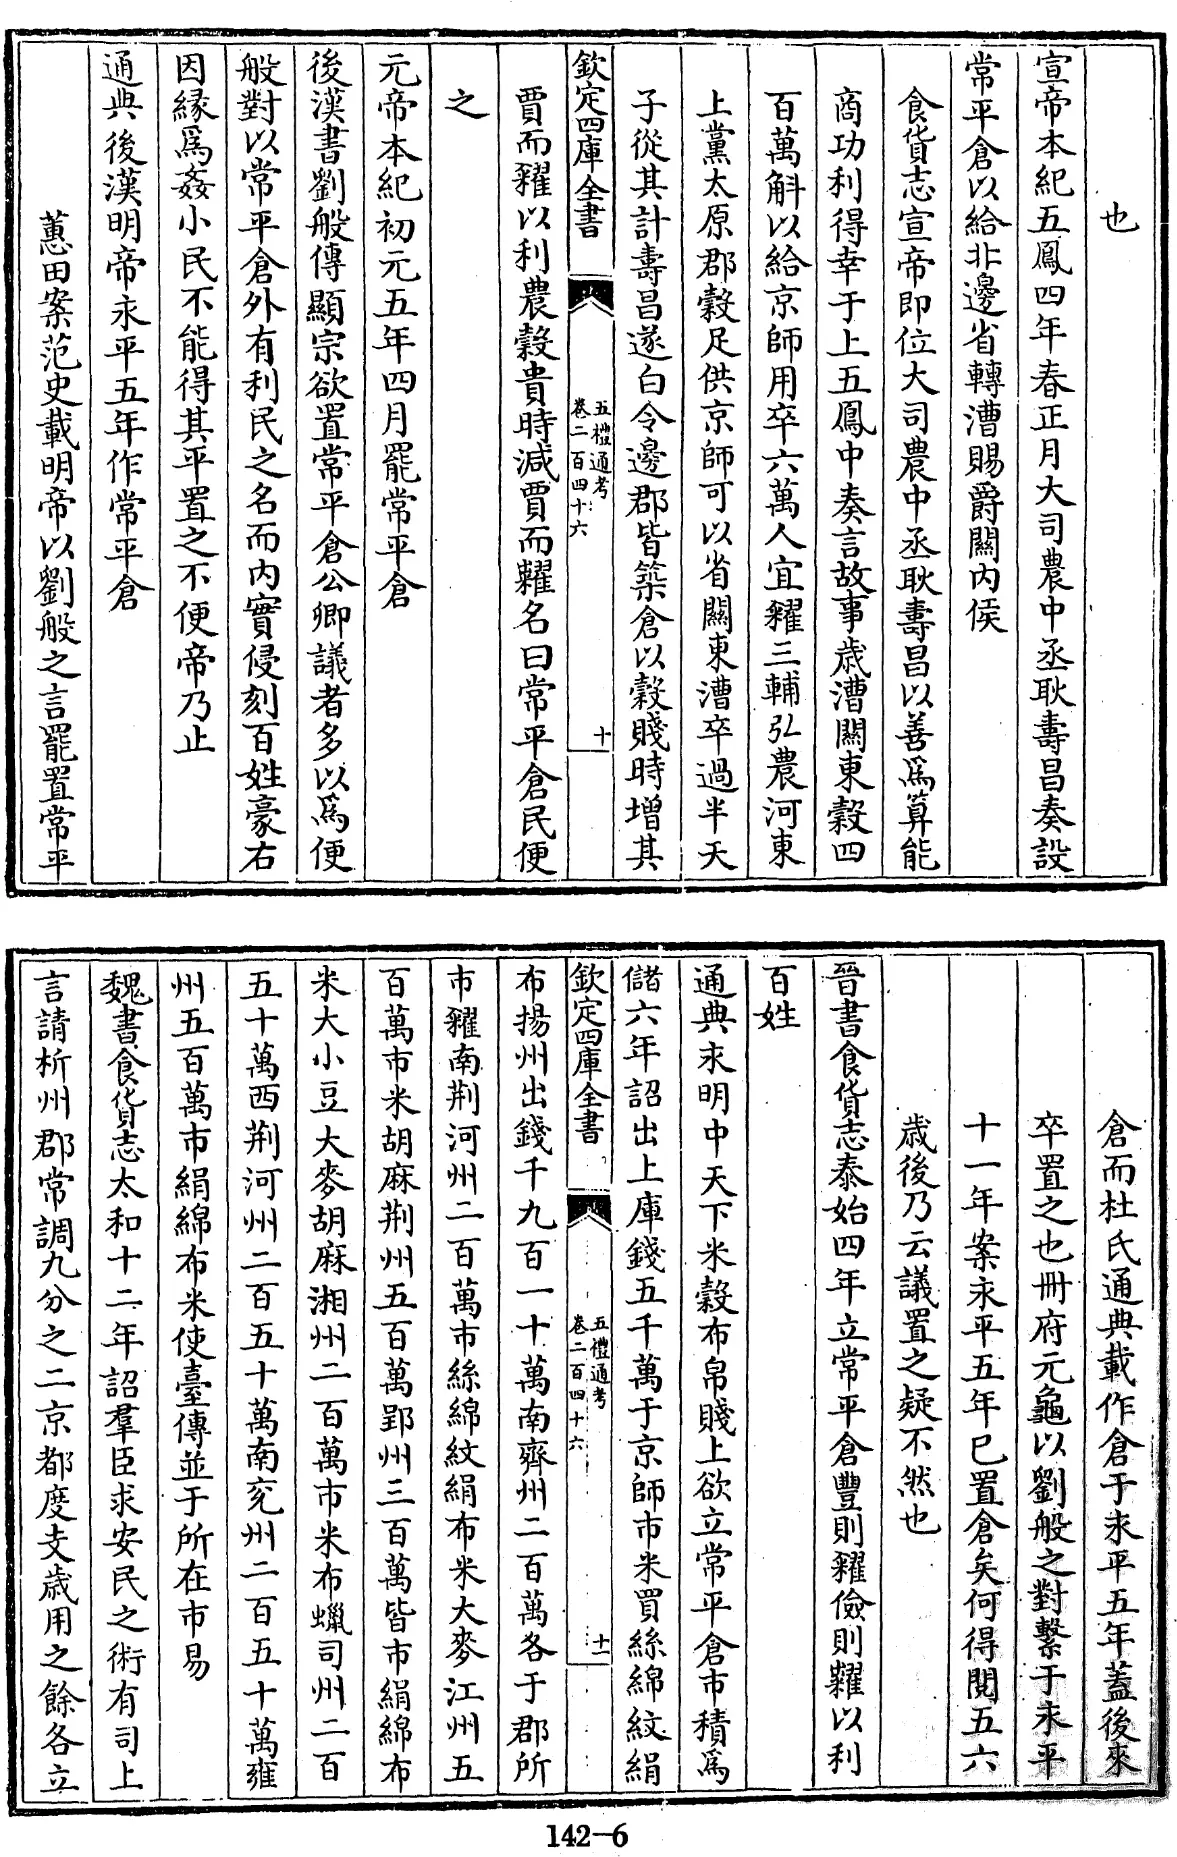 也
宣帝本紀五鳳四年春正月大司農中丞耿壽昌奏設
常平倉以給非邊省轉漕賜爵關内侯
食貨志宣帝即位大司農中丞耿壽昌以善爲算能
商功利得幸于上五鳳中奏言故事歳漕關東穀四
百萬斛以給京師用卒六萬人宜糴三輔弘農河東
上黨太原郡穀足供京師可以省關東漕卒過半天
子從其計壽昌遂白令邊郡皆築倉以穀賤時增其
欽定四庫全書
五禮通考
卷二百四十六
十
賈而糴以利農穀貴時減賈而糶名曰常平倉民便
之
元帝本紀初元五年四月罷常平倉
後漢書劉般傳顯宗欲置常平倉公卿議者多以爲便
般對以常平倉外有利民之名而内實侵刻百姓豪右
因縁爲姦小民不能得其平置之不便帝乃止
通典後漢明帝永平五年作常平倉
蕙田案范史載明帝以劉般之言罷置常平
倉而杜氏通典載作倉于永平五年蓋後來
卒置之也冊府元龜以劉般之對繫于永平
十一年案永平五年已置倉矣何得閱五六
歳後乃云議置之疑不然也
晉書食貨志泰始四年立常平倉豐則糴儉則糶以利
百姓
通典永明中天下米穀布帛賤上欲立常平倉市積爲
儲六年詔出上庫錢五千萬于京師市米買絲綿紋絹
欽定四庫全書
五禮通考
卷二百四十六
十一
布揚州出錢千九百一十萬南齊州二百萬各于郡所
市糴南荆河州二百萬市絲綿紋絹布米大麥江州五
百萬市米胡麻荆州五百萬郢州三百萬皆市絹綿布
米大小豆大麥胡麻湘州二百萬市米布蠟司州二百
五十萬西荆河州二百五十萬南兖州二百五十萬雍
州五百萬市絹綿布米使臺傳並于所在市易
魏書食貨志太和十二年詔羣臣求安民之術有司上
言請析州郡常調九分之二京都度支歳用之餘各立
142-6